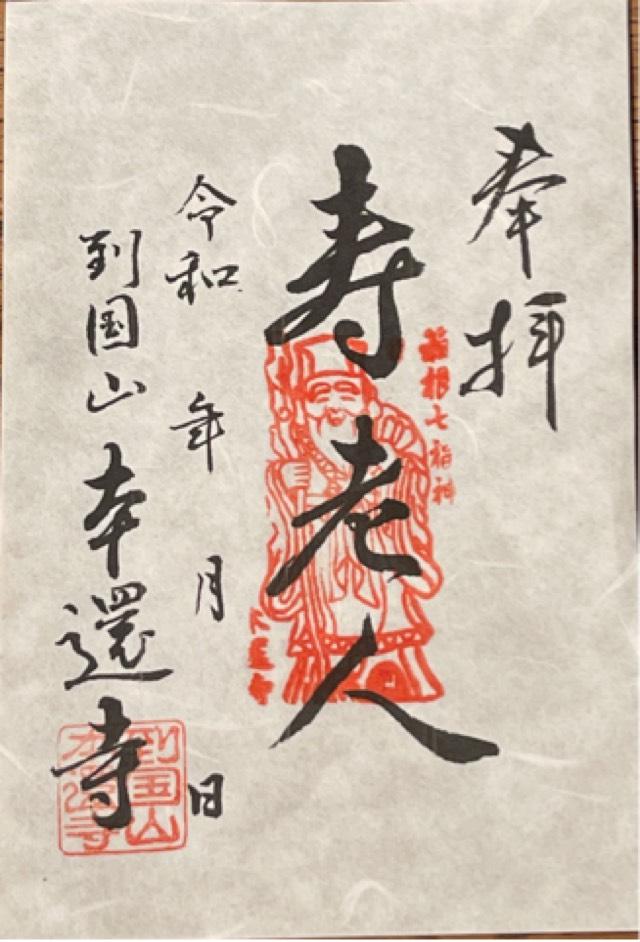 奉拝
箱根七福神
寿老人
本還寺
令和 年 月 日
到国山本還寺
到国山
本還寺